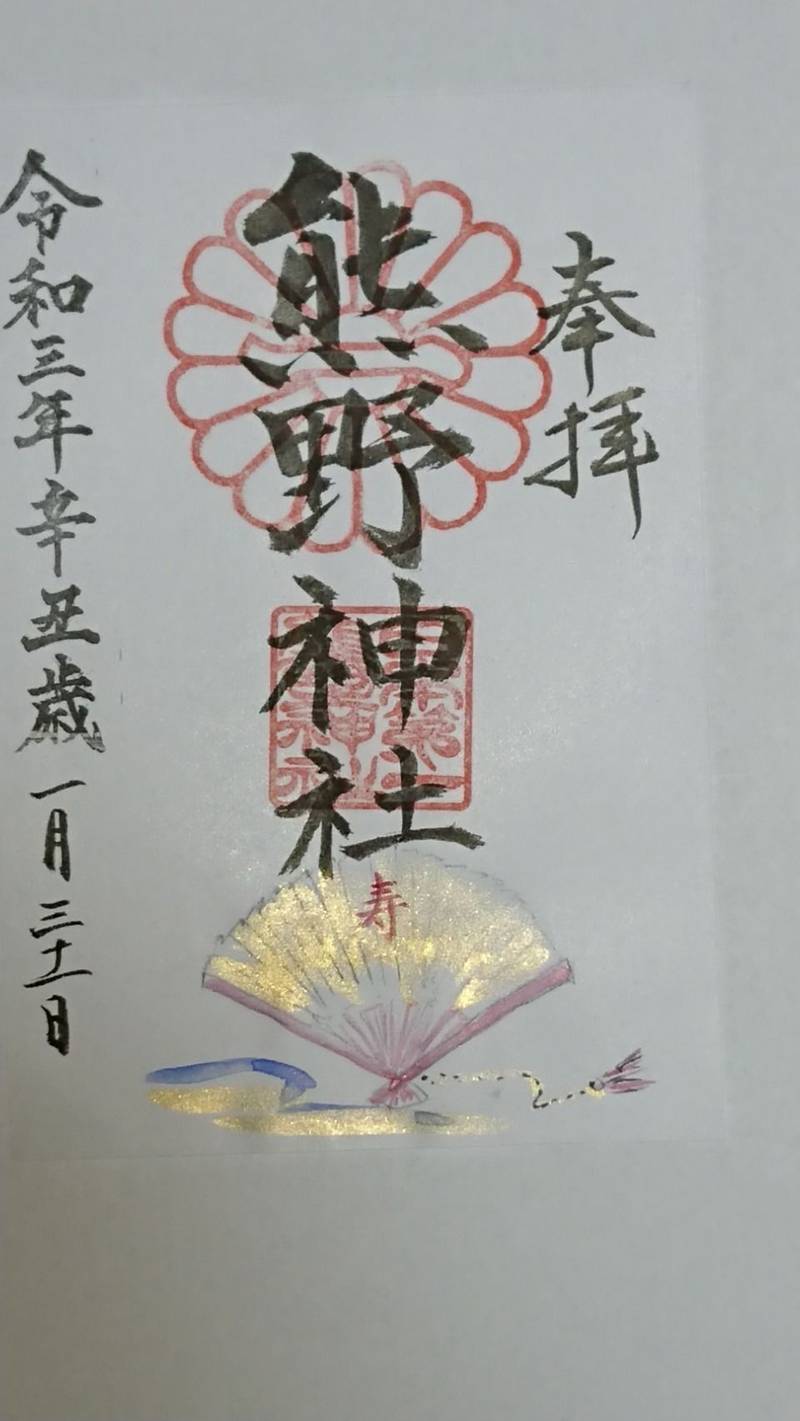 奉拝
熊野神社
寿
令和三年辛丑歳一月三十一日